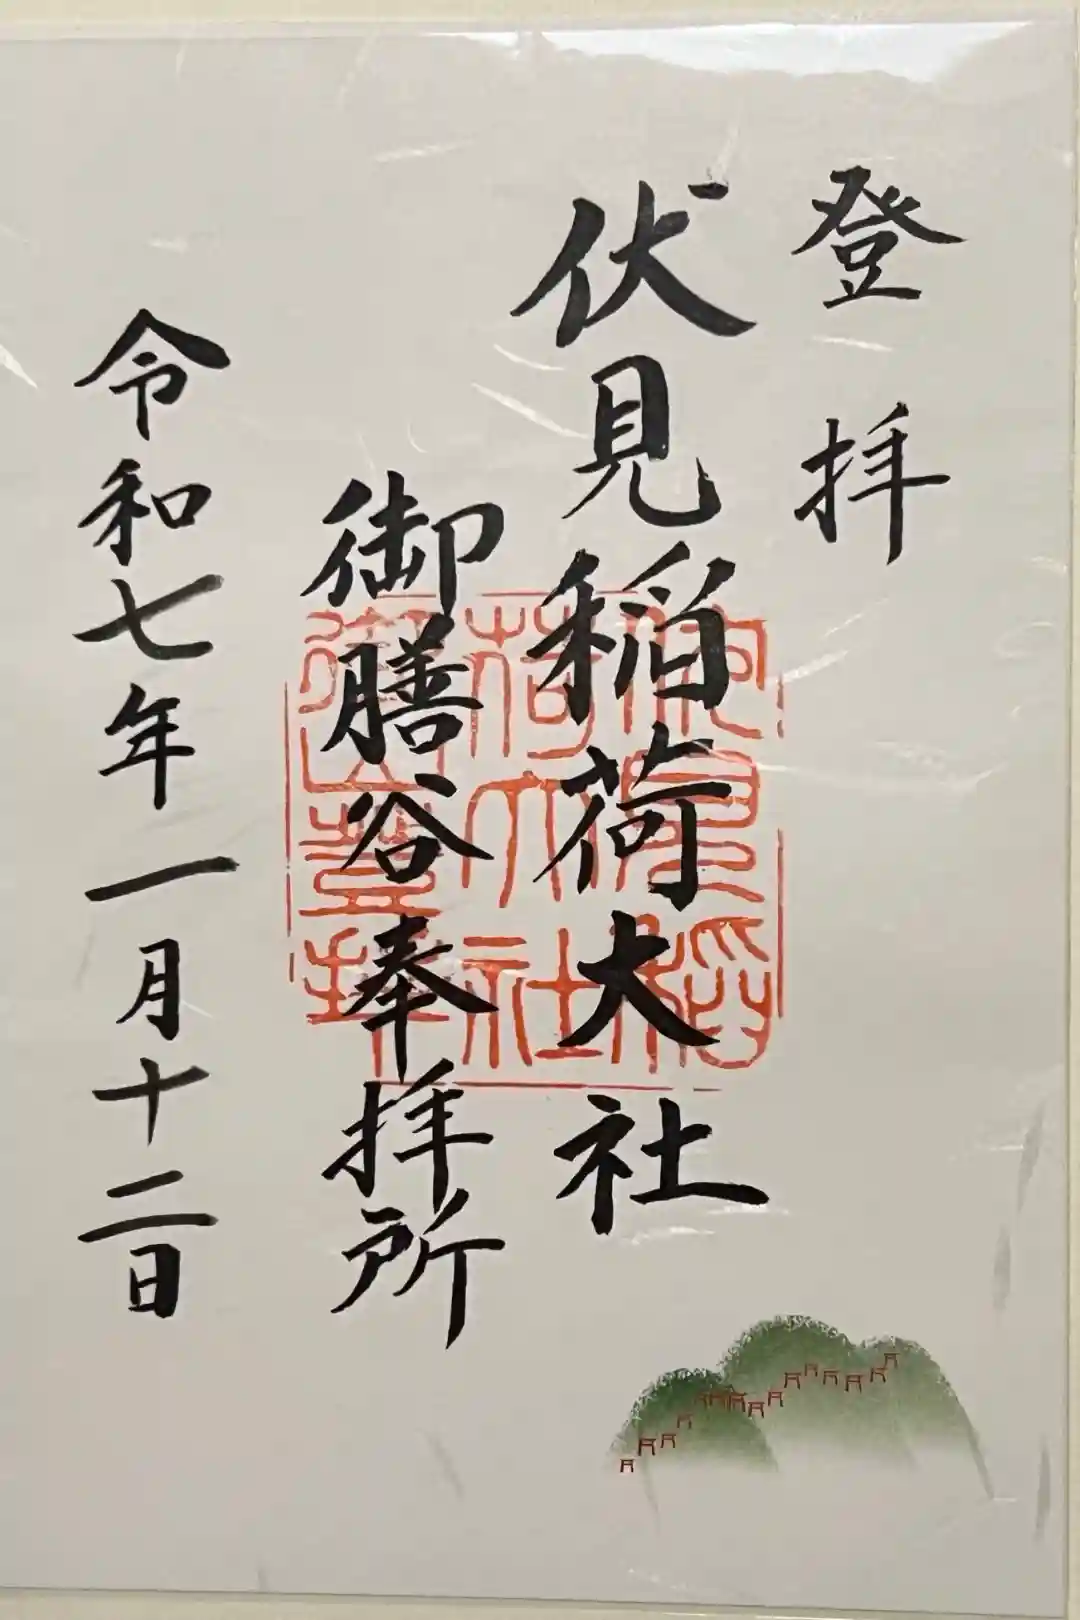 登拝
伏見稲荷大社
御膳谷奉拝所
令和七年一月十二日
伏見稲
荷大社
御山登拝